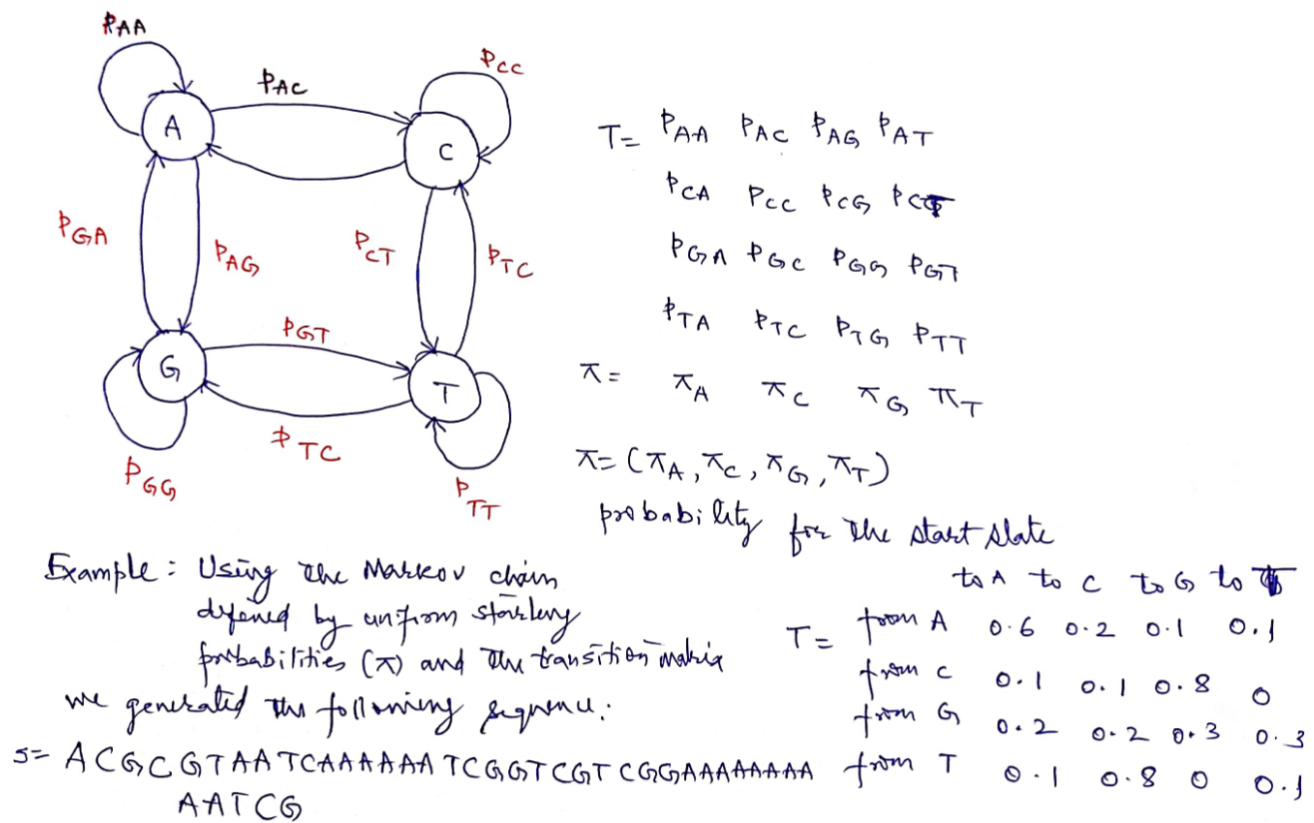 PAA
PAC
PCC
A
C
PGA
PAG
PCT
PTC
PGT
G
T
PTC
PGG
PTT
T= PAA PAC PAG PAT
PCA PCC PCG PCT
PGA PGC PGG PGT
PTA PTC PTG PTT
π= πA πC πG πT
π= (πA, πC, πG, πT)
probability for the start state
Example: Using the Markov chain
defined by uniform starting
probabilities (π) and the transition matrix
we generated the following sequence:
S= ACGCGTAATCAAAAAATCGGTCGTCGGAAAAAAAA
AATCG
to A to C to G to T
T= from A 0.6 0.2 0.1 0.1
from C 0.1 0.1 0.8 0
from G 0.2 0.2 0.3 0.3
from T 0.1 0.8 0 0.1